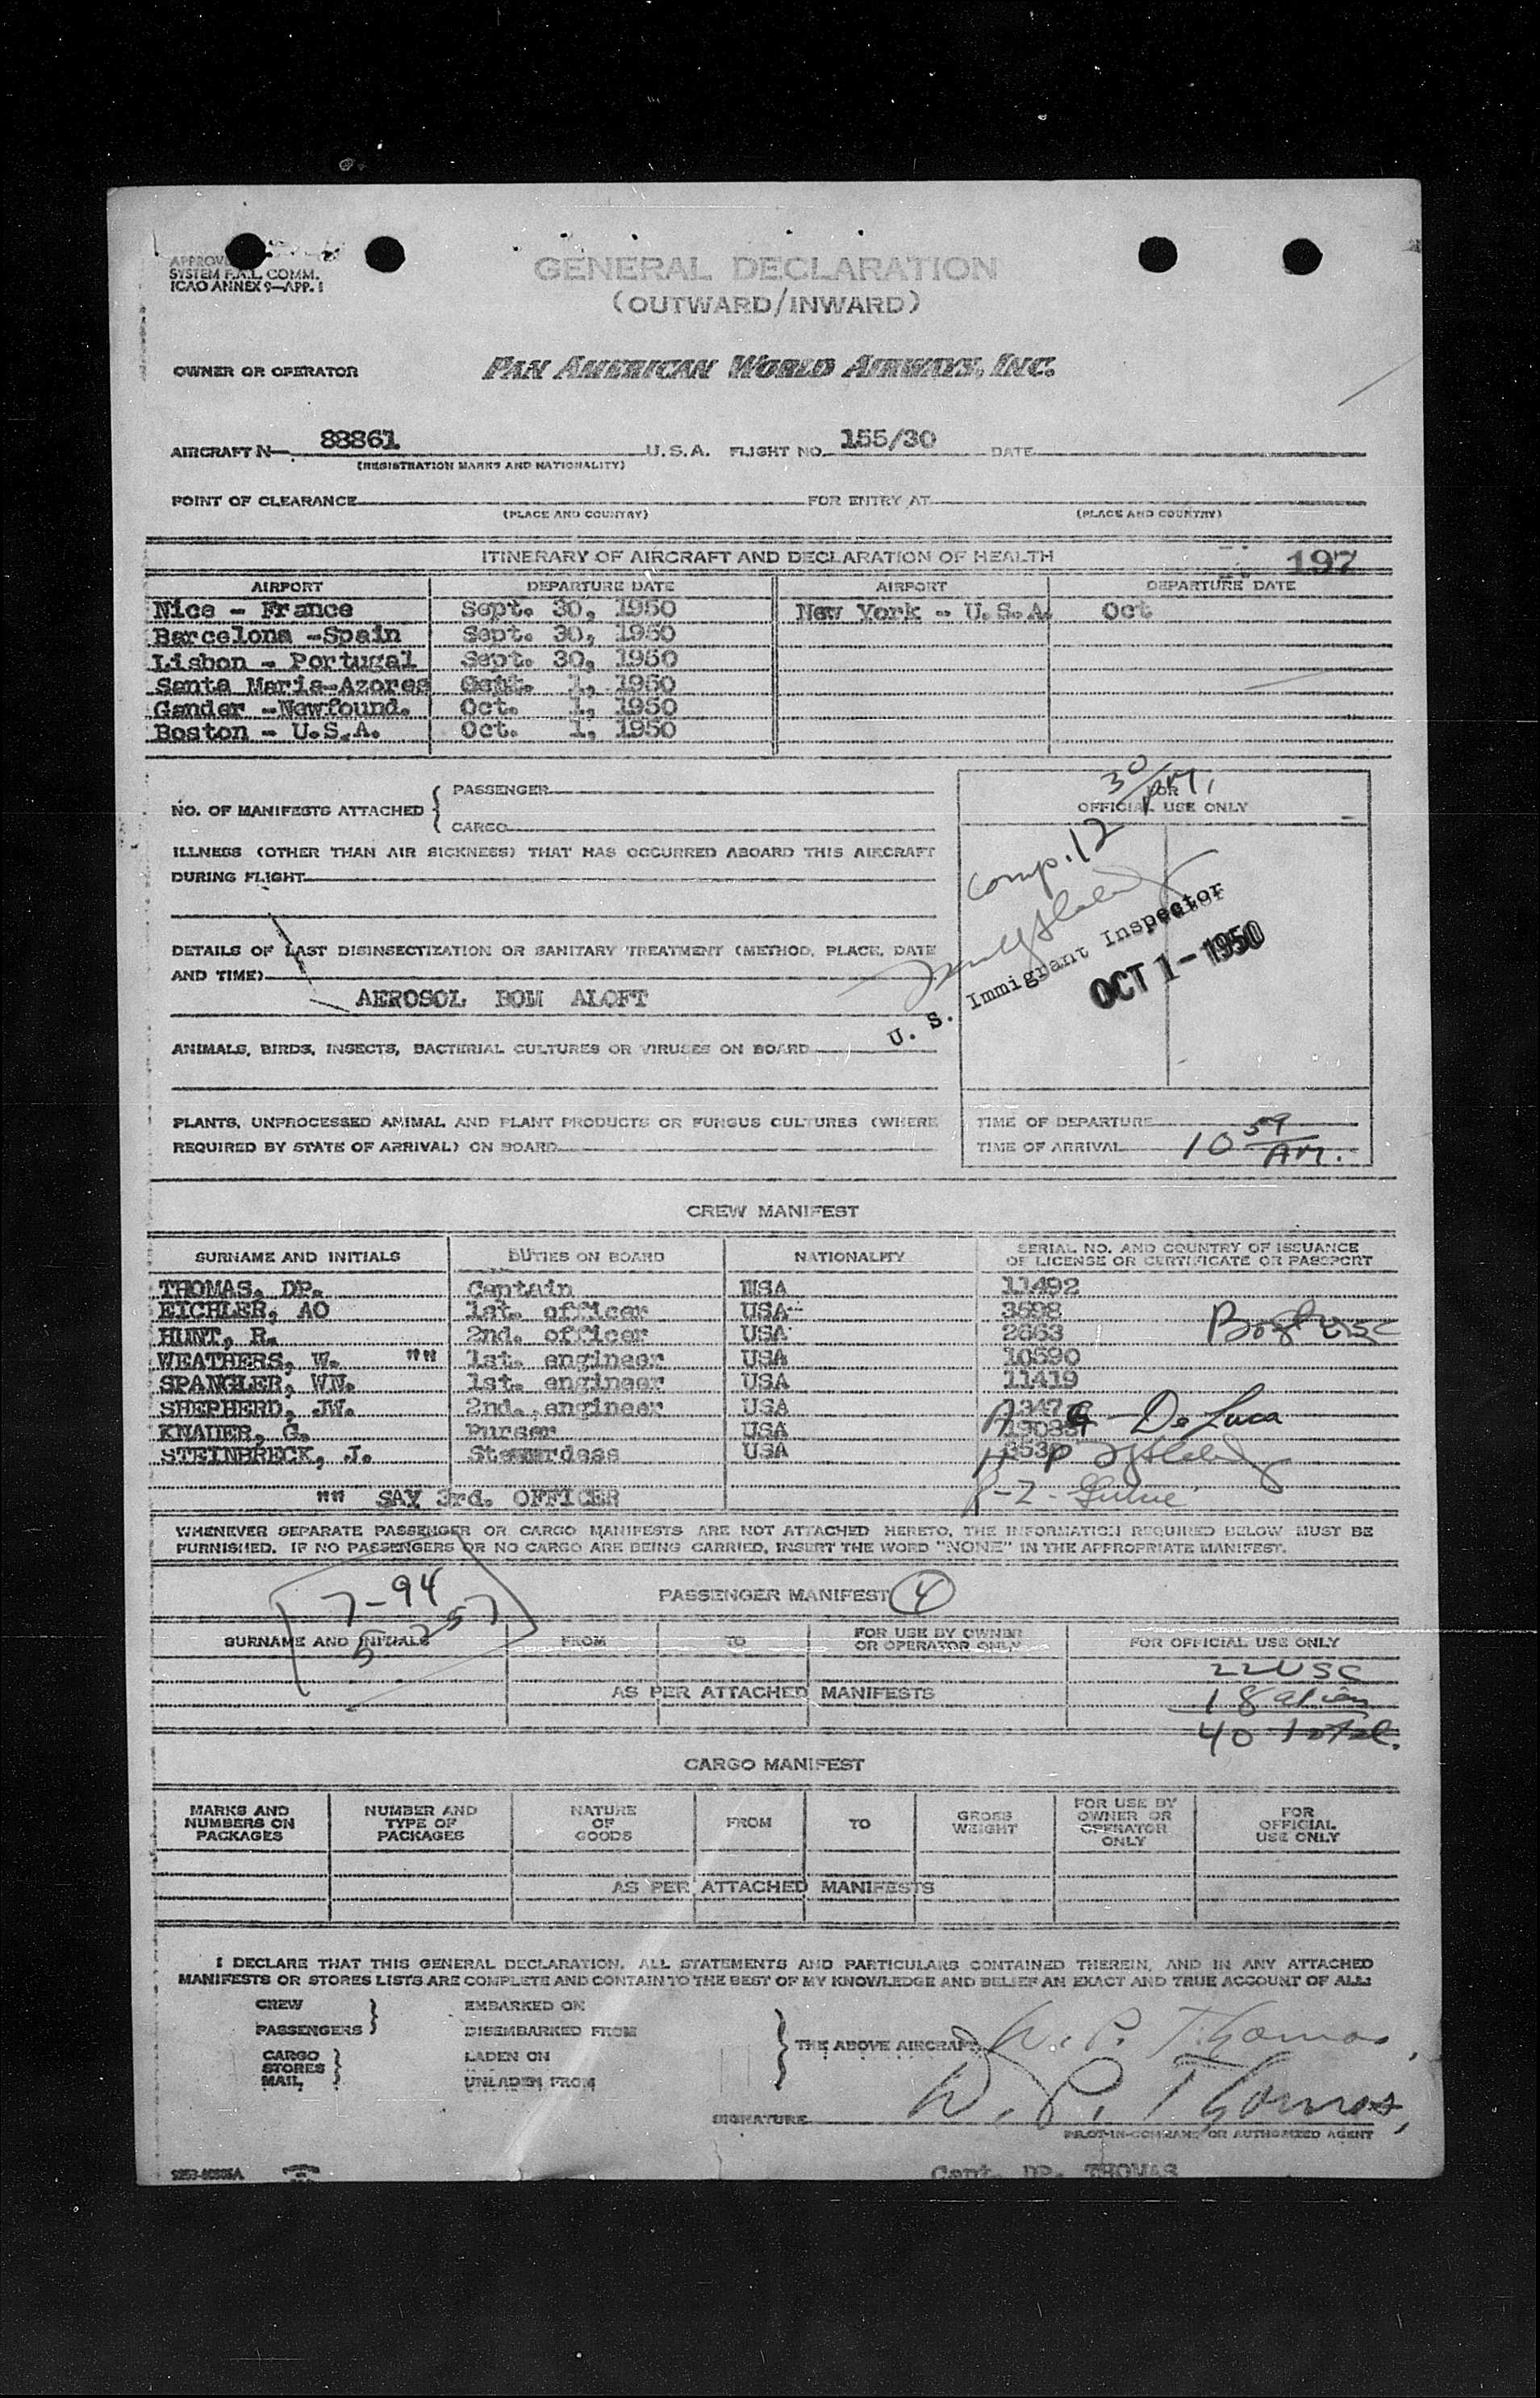 SYSTEM F.A.L. COMM.
ICAO ANNEX 9—APP. 1
GENERAL DECLARATION
(OUTWARD/INWARD)
OWNER OR OPERATOR PAN AMERICAN WORLD AIRWAYS, INC.
AIRCRAFT N— 88861 U.S.A. FLIGHT NO. 155/30 DATE
(REGISTRATION MARKS AND NATIONALITY)
POINT OF CLEARANCE FOR ENTRY AT
(PLACE AND COUNTRY) (PLACE AND COUNTRY)
ITINERARY OF AIRCRAFT AND DECLARATION OF HEALTH 197
AIRPORT DEPARTURE DATE AIRPORT DEPARTURE DATE
Nice - France Sept. 30, 1950 New York - U.S.A. Oct
Barcelona -Spain Sept. 30, 1950
Lisbon - Portugal Sept. 30, 1950
Santa Maria-Azores 1, 1950
Gander -Newfound. Oct. 1, 1950
Boston - U.S.A. Oct. 1, 1950
NO. OF MANIFESTS ATTACHED { PASSENGER
CARGO
FOR
OFFICIAL USE ONLY
comp. 12 30 PM.
ILLNESS (OTHER THAN AIR SICKNESS) THAT HAS OCCURRED ABOARD THIS AIRCRAFT
DURING FLIGHT
DETAILS OF LAST DISINSECTIZATION OR SANITARY TREATMENT (METHOD, PLACE, DATE
AND TIME)
AEROSOL BOM ALOFT
U. S. Immigrant Inspector
OCT 1 - 1950
ANIMALS, BIRDS, INSECTS, BACTERIAL CULTURES OR VIRUSES ON BOARD
PLANTS, UNPROCESSED ANIMAL AND PLANT PRODUCTS OR FUNGUS CULTURES (WHERE
REQUIRED BY STATE OF ARRIVAL) ON BOARD
TIME OF DEPARTURE
TIME OF ARRIVAL 10 59 AM.
CREW MANIFEST
SURNAME AND INITIALS DUTIES ON BOARD NATIONALITY SERIAL NO. AND COUNTRY OF ISSUANCE
OF LICENSE OR CERTIFICATE OR PASSPORT
THOMAS, DP. Captain USA 11492
EICHLER, AO 1st. officer USA 3598
HUNT, R. 2nd. officer USA 2663
WEATHERS, W. "" 1st. engineer USA 10590
SPANGLER, WN. 1st. engineer USA 11419
SHEPHERD, JW. 2nd. engineer USA De Luca
KNAUER, G. Purser USA
STEINBRECK, J. Stewardess USA
"" SAY 3rd. OFFICER
WHENEVER SEPARATE PASSENGER OR CARGO MANIFESTS ARE NOT ATTACHED HERETO, THE INFORMATION REQUIRED BELOW MUST BE
FURNISHED. IF NO PASSENGERS OR NO CARGO ARE BEING CARRIED, INSERT THE WORD "NONE" IN THE APPROPRIATE MANIFEST.
7-94
5 257
PASSENGER MANIFEST 4
SURNAME AND INITIALS FROM TO FOR USE BY OWNER
OR OPERATOR ONLY FOR OFFICIAL USE ONLY
22 USC
AS PER ATTACHED MANIFESTS 18 alien
40 total.
CARGO MANIFEST
MARKS AND
NUMBERS ON
PACKAGES
NUMBER AND
TYPE OF
PACKAGES
NATURE
OF
GOODS
FROM
TO
GROSS
WEIGHT
FOR USE BY
OWNER OR
OPERATOR
ONLY
FOR
OFFICIAL
USE ONLY
AS PER ATTACHED MANIFESTS
I DECLARE THAT THIS GENERAL DECLARATION, ALL STATEMENTS AND PARTICULARS CONTAINED THEREIN, AND IN ANY ATTACHED
MANIFESTS OR STORES LISTS ARE COMPLETE AND CONTAIN TO THE BEST OF MY KNOWLEDGE AND BELIEF AN EXACT AND TRUE ACCOUNT OF ALL:
CREW EMBARKED ON
PASSENGERS DISEMBARKED FROM
CARGO LADEN ON
STORES
MAIL UNLADEN FROM
THE ABOVE AIRCRAFT
SIGNATURE D. P. Thomas
PILOT-IN-COMMAND OR AUTHORIZED AGENT
Capt. DP. THOMAS